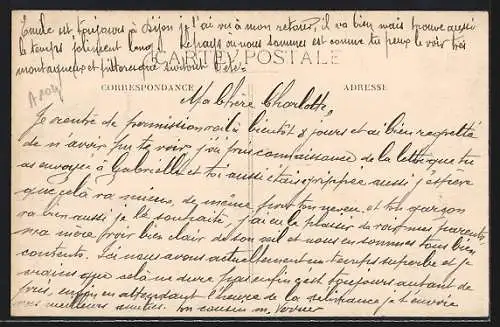 Emile est toujours à Dijon je l'ai vu à mon retour, il va bien mais trouve aussi
le temps joliment long. Le pays où nous sommes est comme tu peux le voir très
montagneux et pittoresque surtout
CARTE POSTALE
CORRESPONDANCE
ADRESSE
Ma Chère Charlotte,
Je rentre de permission voilà bientôt 8 jours et ai bien regretté
de n'avoir pu te voir, j'ai pris connaissance de la lettre que tu
as envoyée à Gabrielle et toi aussi étais grippée aussi j'espère
que cela va mieux, de même pour ton neveu, et ton garçon
va bien aussi je le souhaite, j'ai eu le plaisir de voir mes parents,
ma mère bien clair de son œil et nous en sommes tous bien
contents. Ici nous avons actuellement un temps superbe et je
crains que cela ne dure pas enfin c'est toujours autant de
pris, enfin en attendant l'heure de la délivrance je t'envoie
mes meilleures amitiés. Ton cousin